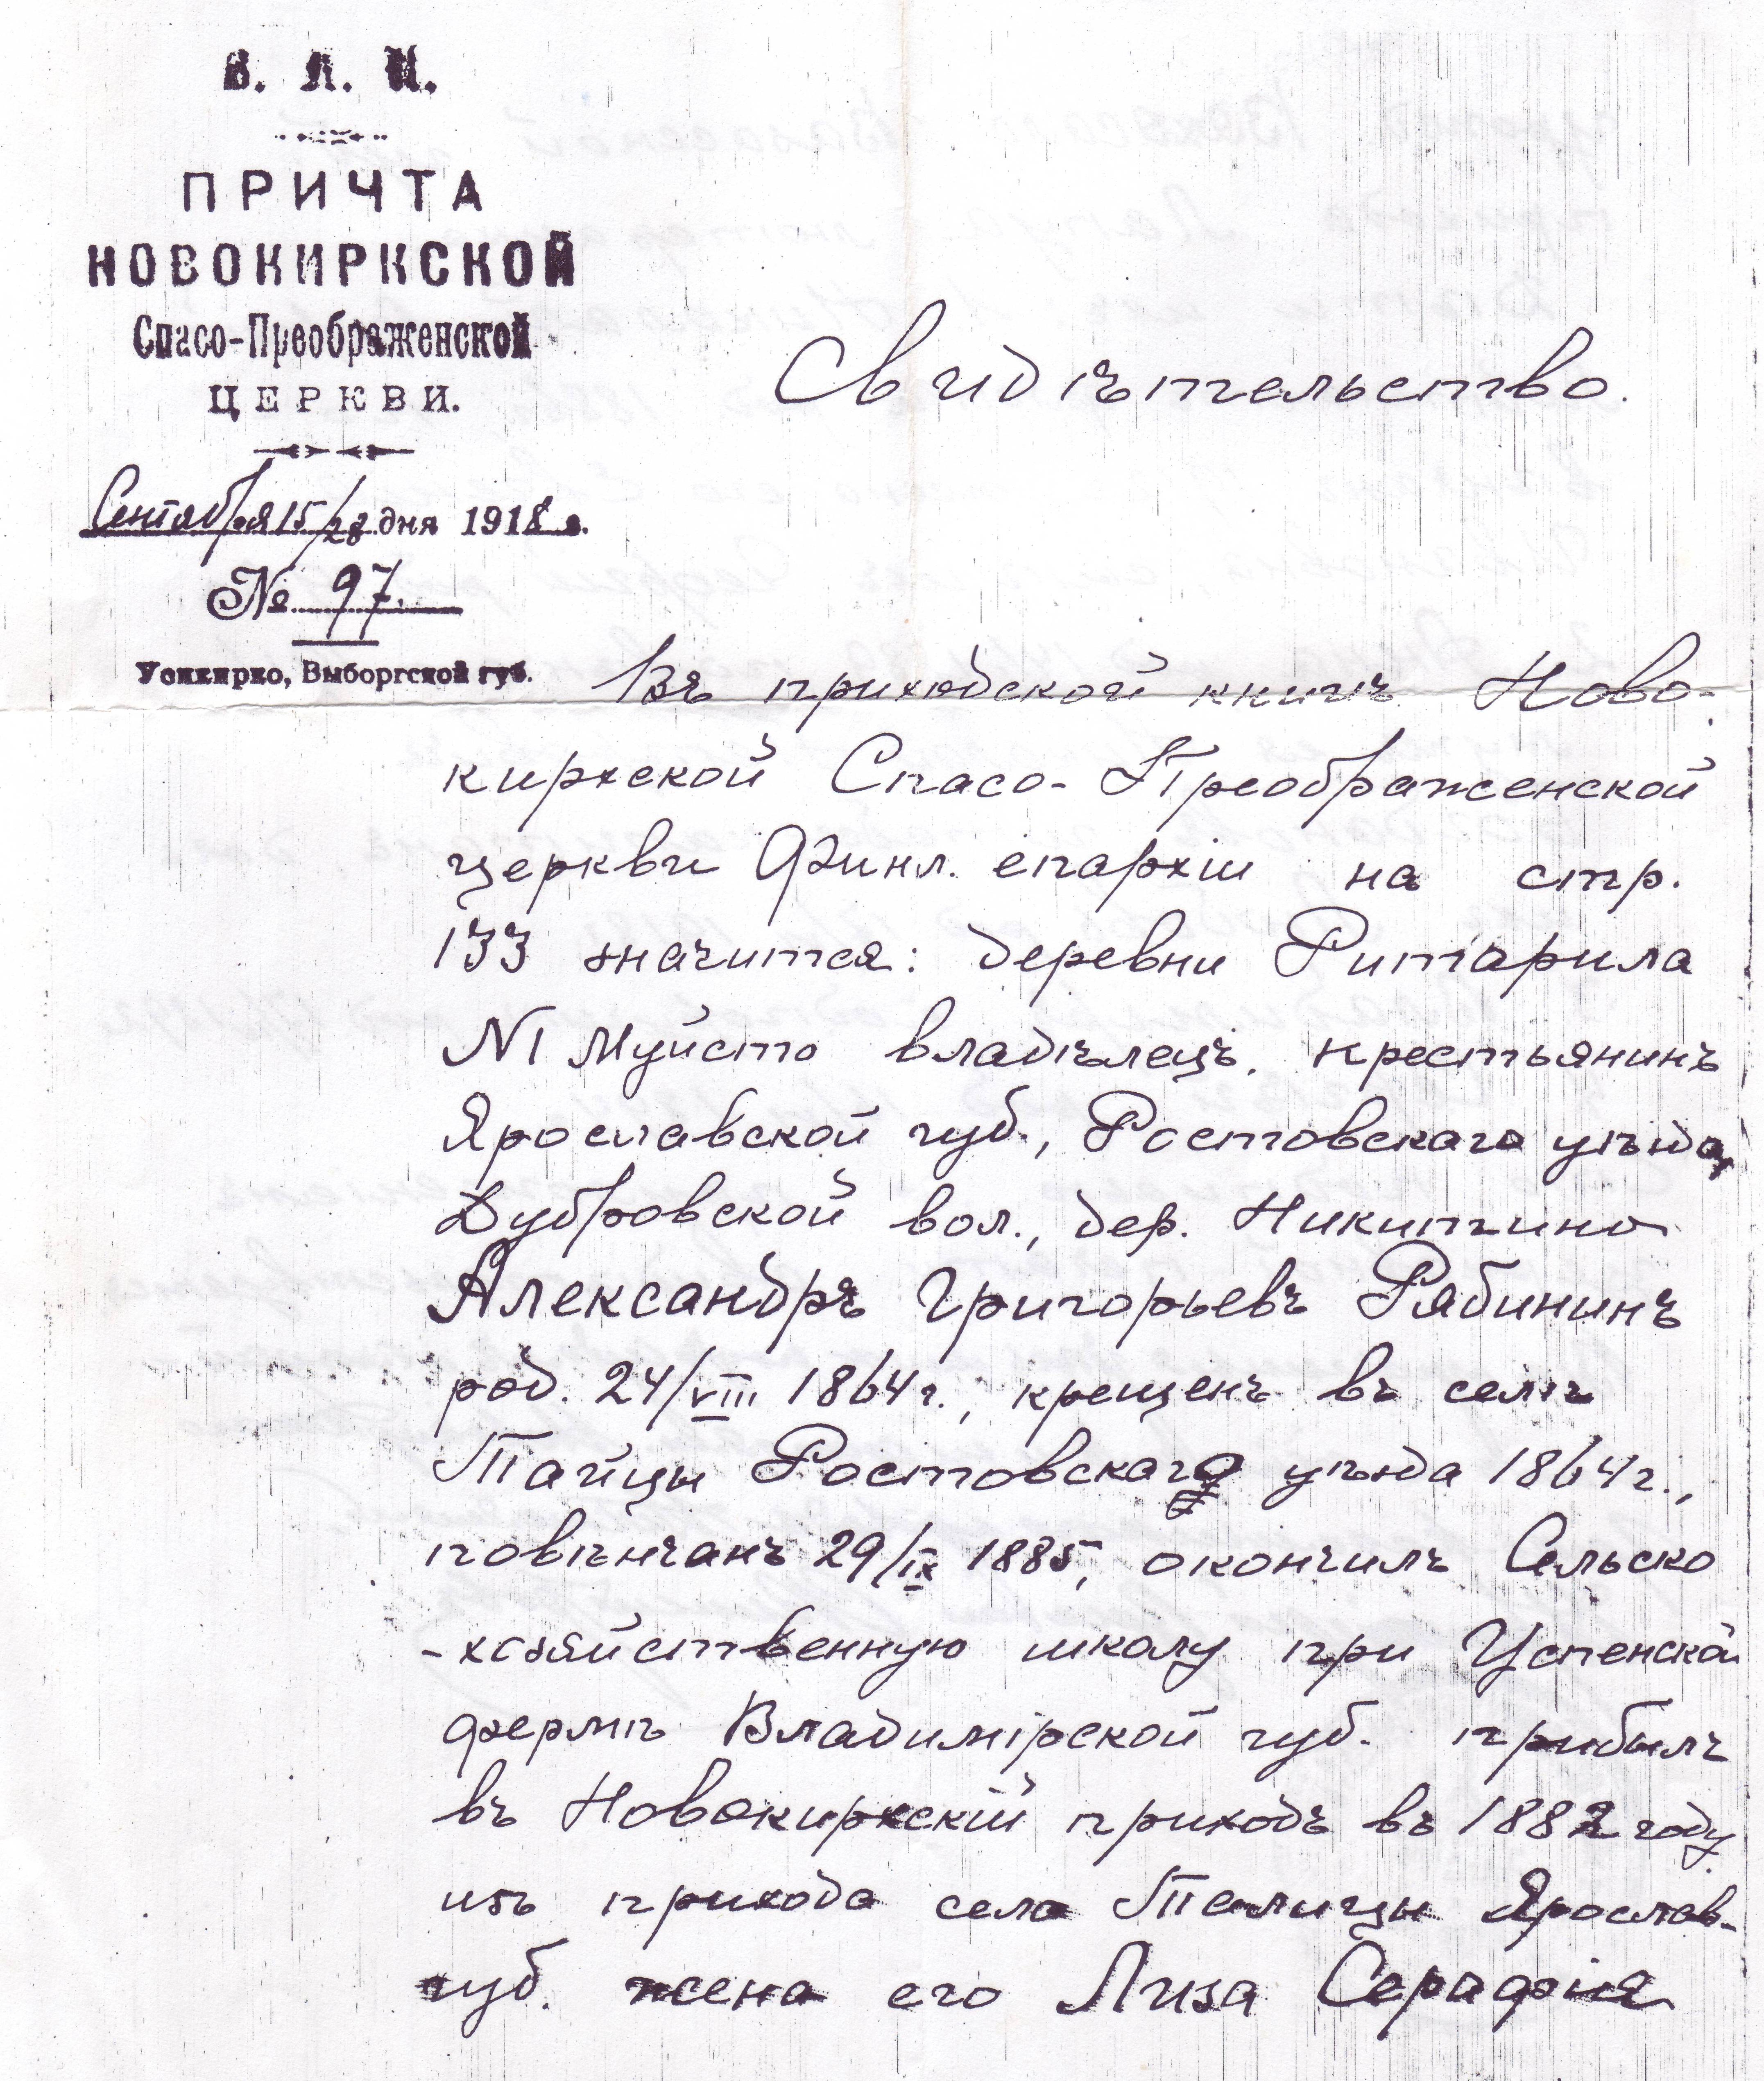 В. Л. И.
ПРИЧТА
НОВОКИРКСКОЙ
Спасо-Преображенской
ЦЕРКВИ.
Сентября 15/28 дня 1918 г.
№ 97.
Усикирко, Выборгской губ.
Свидѣтельство.
Въ приходской книгѣ Ново-
киркской Спасо-Преображенской
церкви Финл. епархіи на стр.
133 значится: деревни Ритарила
N1 Муйсто владѣлецъ. крестьянинъ
Ярославской губ., Ростовскаго уѣзда,
Дубровской вол., дер. Никитино
Александръ Григорьевъ Рябининъ
род. 24/VIII 1864 г., крещенъ въ селѣ
Тайцы Ростовскаго уѣзда 1864 г.,
повѣнчанъ 29/IX 1885, окончилъ Сельско
-хозяйственную школу при Успенской
фермѣ Владимірской губ. прибылъ
въ Новокиркскій приходъ въ 1882 году
изъ прихода села Талицы Ярослав.
губ. жена его Лиза Серафія